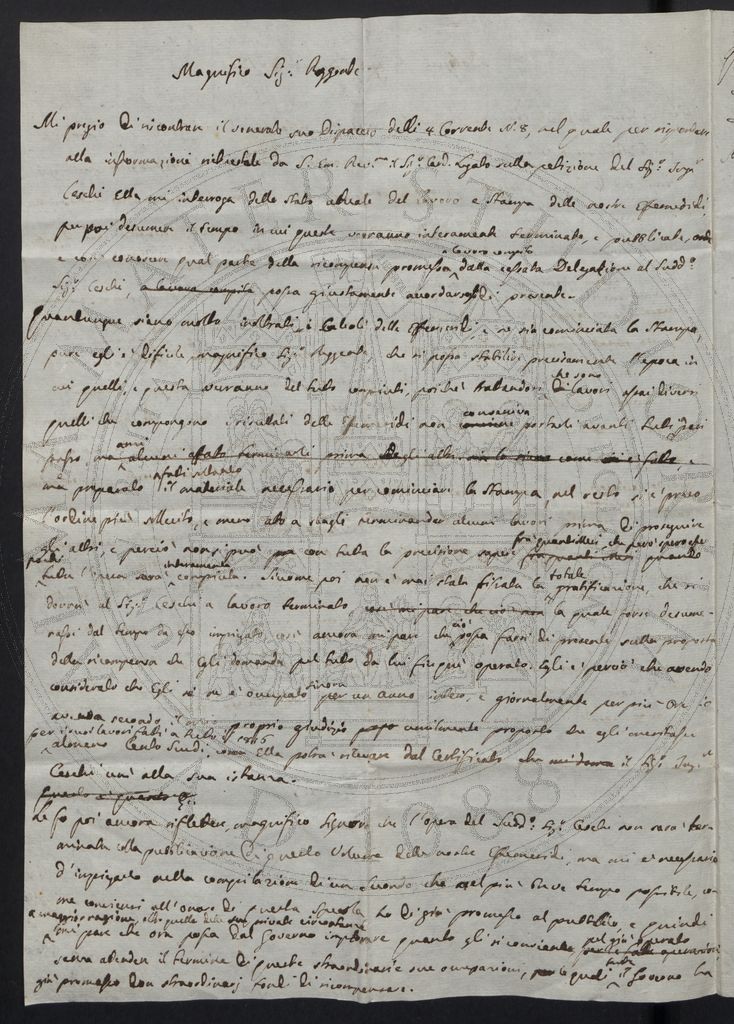 Magnifico Sig.r Reggente
Mi pregio di riscontrare il venerato suo Dispaccio delli 4 Corrente N. 8, nel quale per rispondere
alla informazione richiestale da S. Em. Rev.ma il Sig.r Card. Legato sulla petizione del Sig.r Ing.r
Ceschi Ella mi interroga dello stato attuale del lavoro e stampa delle nostre Effemeridi,
per poi desumere il tempo in cui queste verranno interamente terminate, e pubblicate,
e così conoscere qual parte della ricompensa promessa a lavoro compito dalla cessata Delegazione al Sudd.o
Sig.r Ceschi, a lavoro compito possa giustamente accordarsi di presente.
Quantunque siano molto inoltrati i Calcoli delle Effemeridi, e ne sia cominciata la Stampa,
pure egli è difficile, magnifico Sig.r Reggente, che si possa stabilire precisamente l'epoca in
cui quelli, e questa verranno del tutto compiuti, poichè trattandosi che sono di lavori assai diversi
quelli che compongono i risultati delle Effemeridi non conveniva portarli avanti tutti di pari
passo, ma anzi alcuni affatto terminarli prima degli altri
ma preparato il materiale necessario per cominciare la Stampa, nel resto si è preso
l'ordine più sollecito, e meno atto a sbagli terminando alcuni lavori prima di proseguire
gli altri, e perciò non si può con tutta la precisione sapere fra quanti mesi quando
tutta l'opera sarà interamente compiuta. Siccome poi non è mai stata fissata la totale gratificazione, che si
dovrà al Sig.r Ceschi a lavoro terminato, la quale forse desume-
rassi dal tempo da esso impiegato, così ancora mi pare che ciò possa farsi di presente sulla proposta
della ricompensa che Egli domanda pel tutto da lui fin qui operato. Egli è perciò che avendo
considerato che Egli se ne è occupato sinora per un anno intero, e giornalmente per più Ore, io
avendo secondo il mio proprio giudizio umilmente proposto che egli meritasse
per i suoi lavori fatti a tutto il 1816
almeno Cento Scudi, come Ella potrà rilevare dal Certificato che il Sig.r Ing.r
Ceschi unì alla sua istanza.
Le fo poi ancora riflettere, magnifico Signore che l'opera del Sudd.o Sig.r Ceschi non sarà ter-
minata colla pubblicazione di questo Volume delle nostre Effemeridi, ma mi è necessario
d'impiegarlo nella compilazione di un Secondo che nel più breve tempo possibile, co-
me conviensi all'onore di questa Specola ho di già promesso al pubblico, e quindi
a maggior ragione, oltre quella delle sue private circostanze
mi pare che ora possa dal Governo implorare quanto gli si conviene pel già operato
senza attendere il termine di queste straordinarie sue occupazioni, per le quali il Governo ha
già promesso con straordinarj fondi di ricompensare.